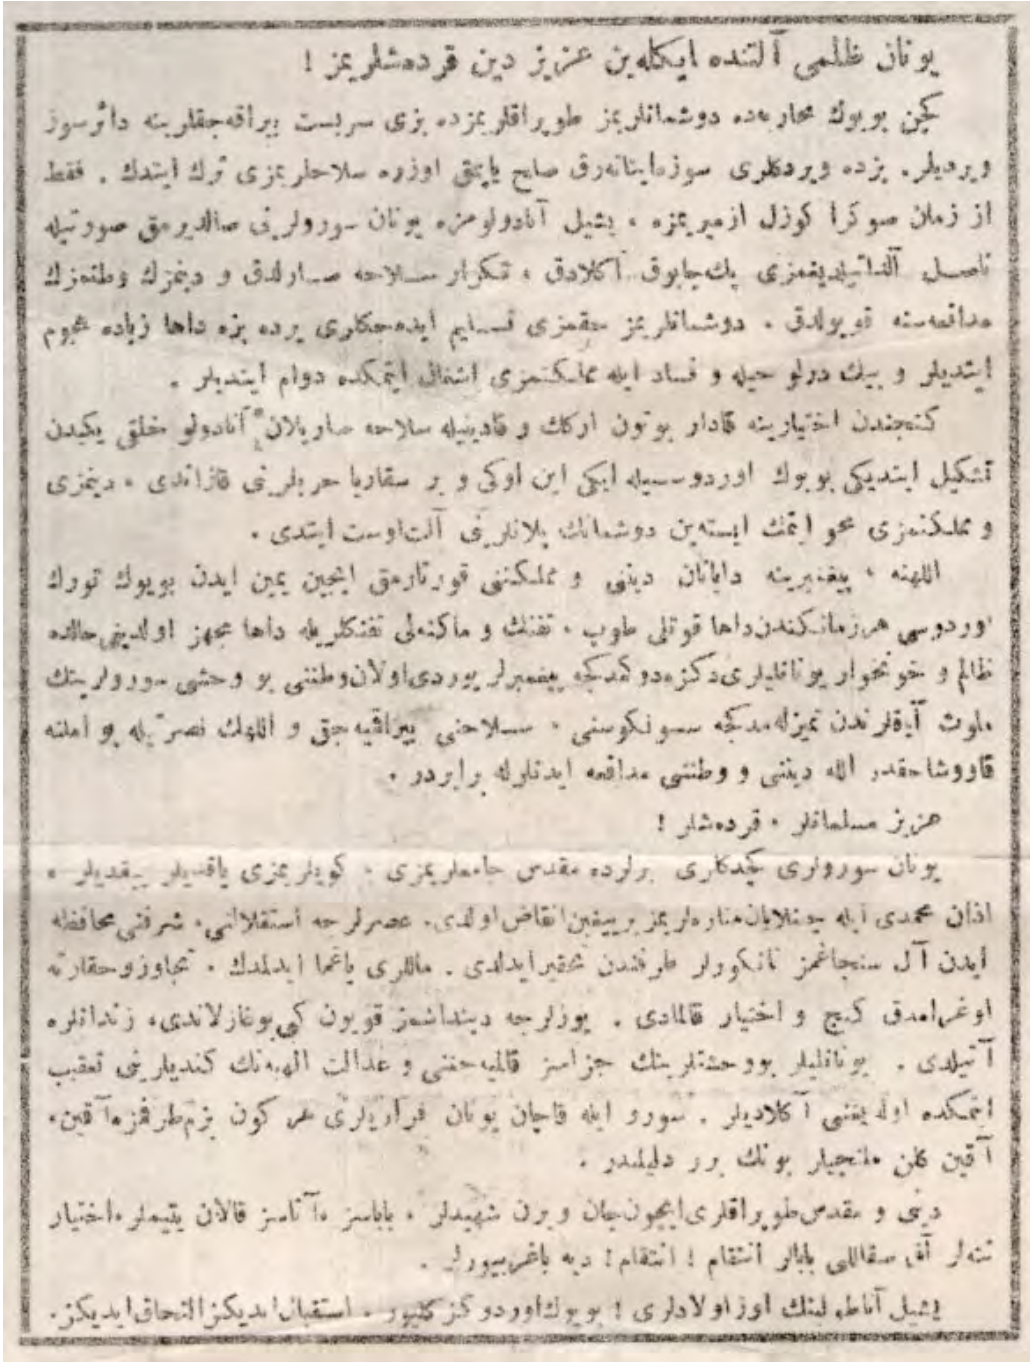 یونان ظلمی آلتنده ایکله‌ین عزیز دین قرده‌شلریمز !
کچن بویوك محاربه‌ده دوشمانلریمز طوپراقلریمزده بزی سربست بیراقه‌جقلرینه دائر سوز
ویردیلر. بزده ویردکلری سوزه اینانه‌رق صلح یاپمق اوزره سلاحلریمزی ترك ایتدك . فقط
از زمان صوکرا کوزل ازمیریمزه ، یشیل آنادولومزه یونان سورولرینی صالدیرمق صورتیله
ناصل آلداتیلدیغمزی پك چابوق آکلادق ، تکرار سلاحه صارلدق و دینمزك وطنمزك
مدافعه‌سنه قویولدق . دوشمانلریمز حقمزی تسلیم ایده‌جکلری یرده بزه داها زیاده هجوم
ایتدیلر و بیك درلو حیله و فساد ایله مملکتمزی اشغال ایتمکده دوام ایتدیلر .
کنجندن اختیارینه قادار بوتون ارکك و قادینیله سلاحه صاریلان آنادولو خلقی یکیدن
تشکیل ایتدیکی بویوك اوردوسیله ایکی این اوکی و بر سقاریا حربلرینی قازاندی ، دینمزی
و مملکتمزی محو ایتمك ایسته‌ین دوشمانك پلانلرینی آلت‌اوست ایتدی .
اللهنه ، پیغمبرینه دایانان دینی و مملکتنی قورتارمق ایچین یمین ایدن بویوك تورك
اوردوسی هر زمانکندن داها قوتلی طوپ ، تفنك و ماکنه‌لی تفنکلریله داها مجهز اولدیغی حالده
ظالم و خونخوار یونانلیلری دکزه دوکمدکجه پیغمبرلر یوردی اولان وطننی بو وحشی سورولرینك
ملوث آیاقلرندن تمیزله‌مدکجه سونکوسنی ، سلاحنی بیراقمیه‌جق و اللهك نصرتیله بو املنه
قاووشاجقدر الله دیننی و وطننی مدافعه ایدنلرله برابردر .
عزیز مسلمانلر ، قرده‌شلر !
یونان سورولری کچدکلری یرلرده مقدس جامعلریمزی ، کویلریمزی یاقدیلر ییقدیلر ،
اذان محمدی ایله چینلایان مناره‌لریمز بر ییغین انقاض اولدی. عصرلرجه استقلالنی، شرفنی محافظه
ایدن آل سنجاغمز نانکورلر طرفندن تحقیر ایدلدی . ماللری یاغما ایدلمدك ، تجاوز و حقارته
اوغرامدق کنج و اختیار قالمادی . یوزلرجه دینداشمز قویون کبی بوغازلاندی، زندانلره
آتیلدی . یونانلیلر بو وحشتلرینك جزاسز قالمیه‌جغنی و عدالت الهیه‌نك کندیلرینی تعقیب
ایتمکده اولدیغنی آکلادیلر . سورو ایله قاچان یونان فراریلری هر کون بزم طرفمزه آقین.
آقین کلن ملتجیلر بونك برر دلیلیدر .
دینی و مقدس طوپراقلری ایچون جان ویرن شهیدلر ، باباسز ، آناسز قالان یتیملر ، اختیار
ننه‌لر آق سقاللی بابالر انتقام ! انتقام ! دیه باغرییورلر .
یشیل آناطولینك اوز اولادلری ! بویوك اوردوکز کلیور . استقبال ایدیکز التحاق ایدیکز.